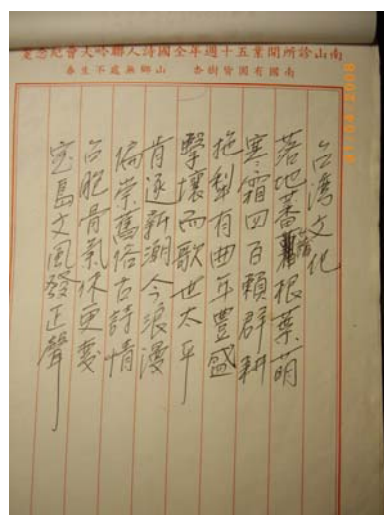 南山診所開業五十週年全國詩人聯吟大會紀念箋
南國有園皆樹杏 山鄉無處不生春
台湾文化
落地蕃藷根葉萌
寒霜四百賴群耕
拖犁有曲年豐盛
擊壤而歌世太平
肯逐新潮今浪漫
偏崇舊俗古詩情
台胞骨氣休更變
宝島文風發正聲